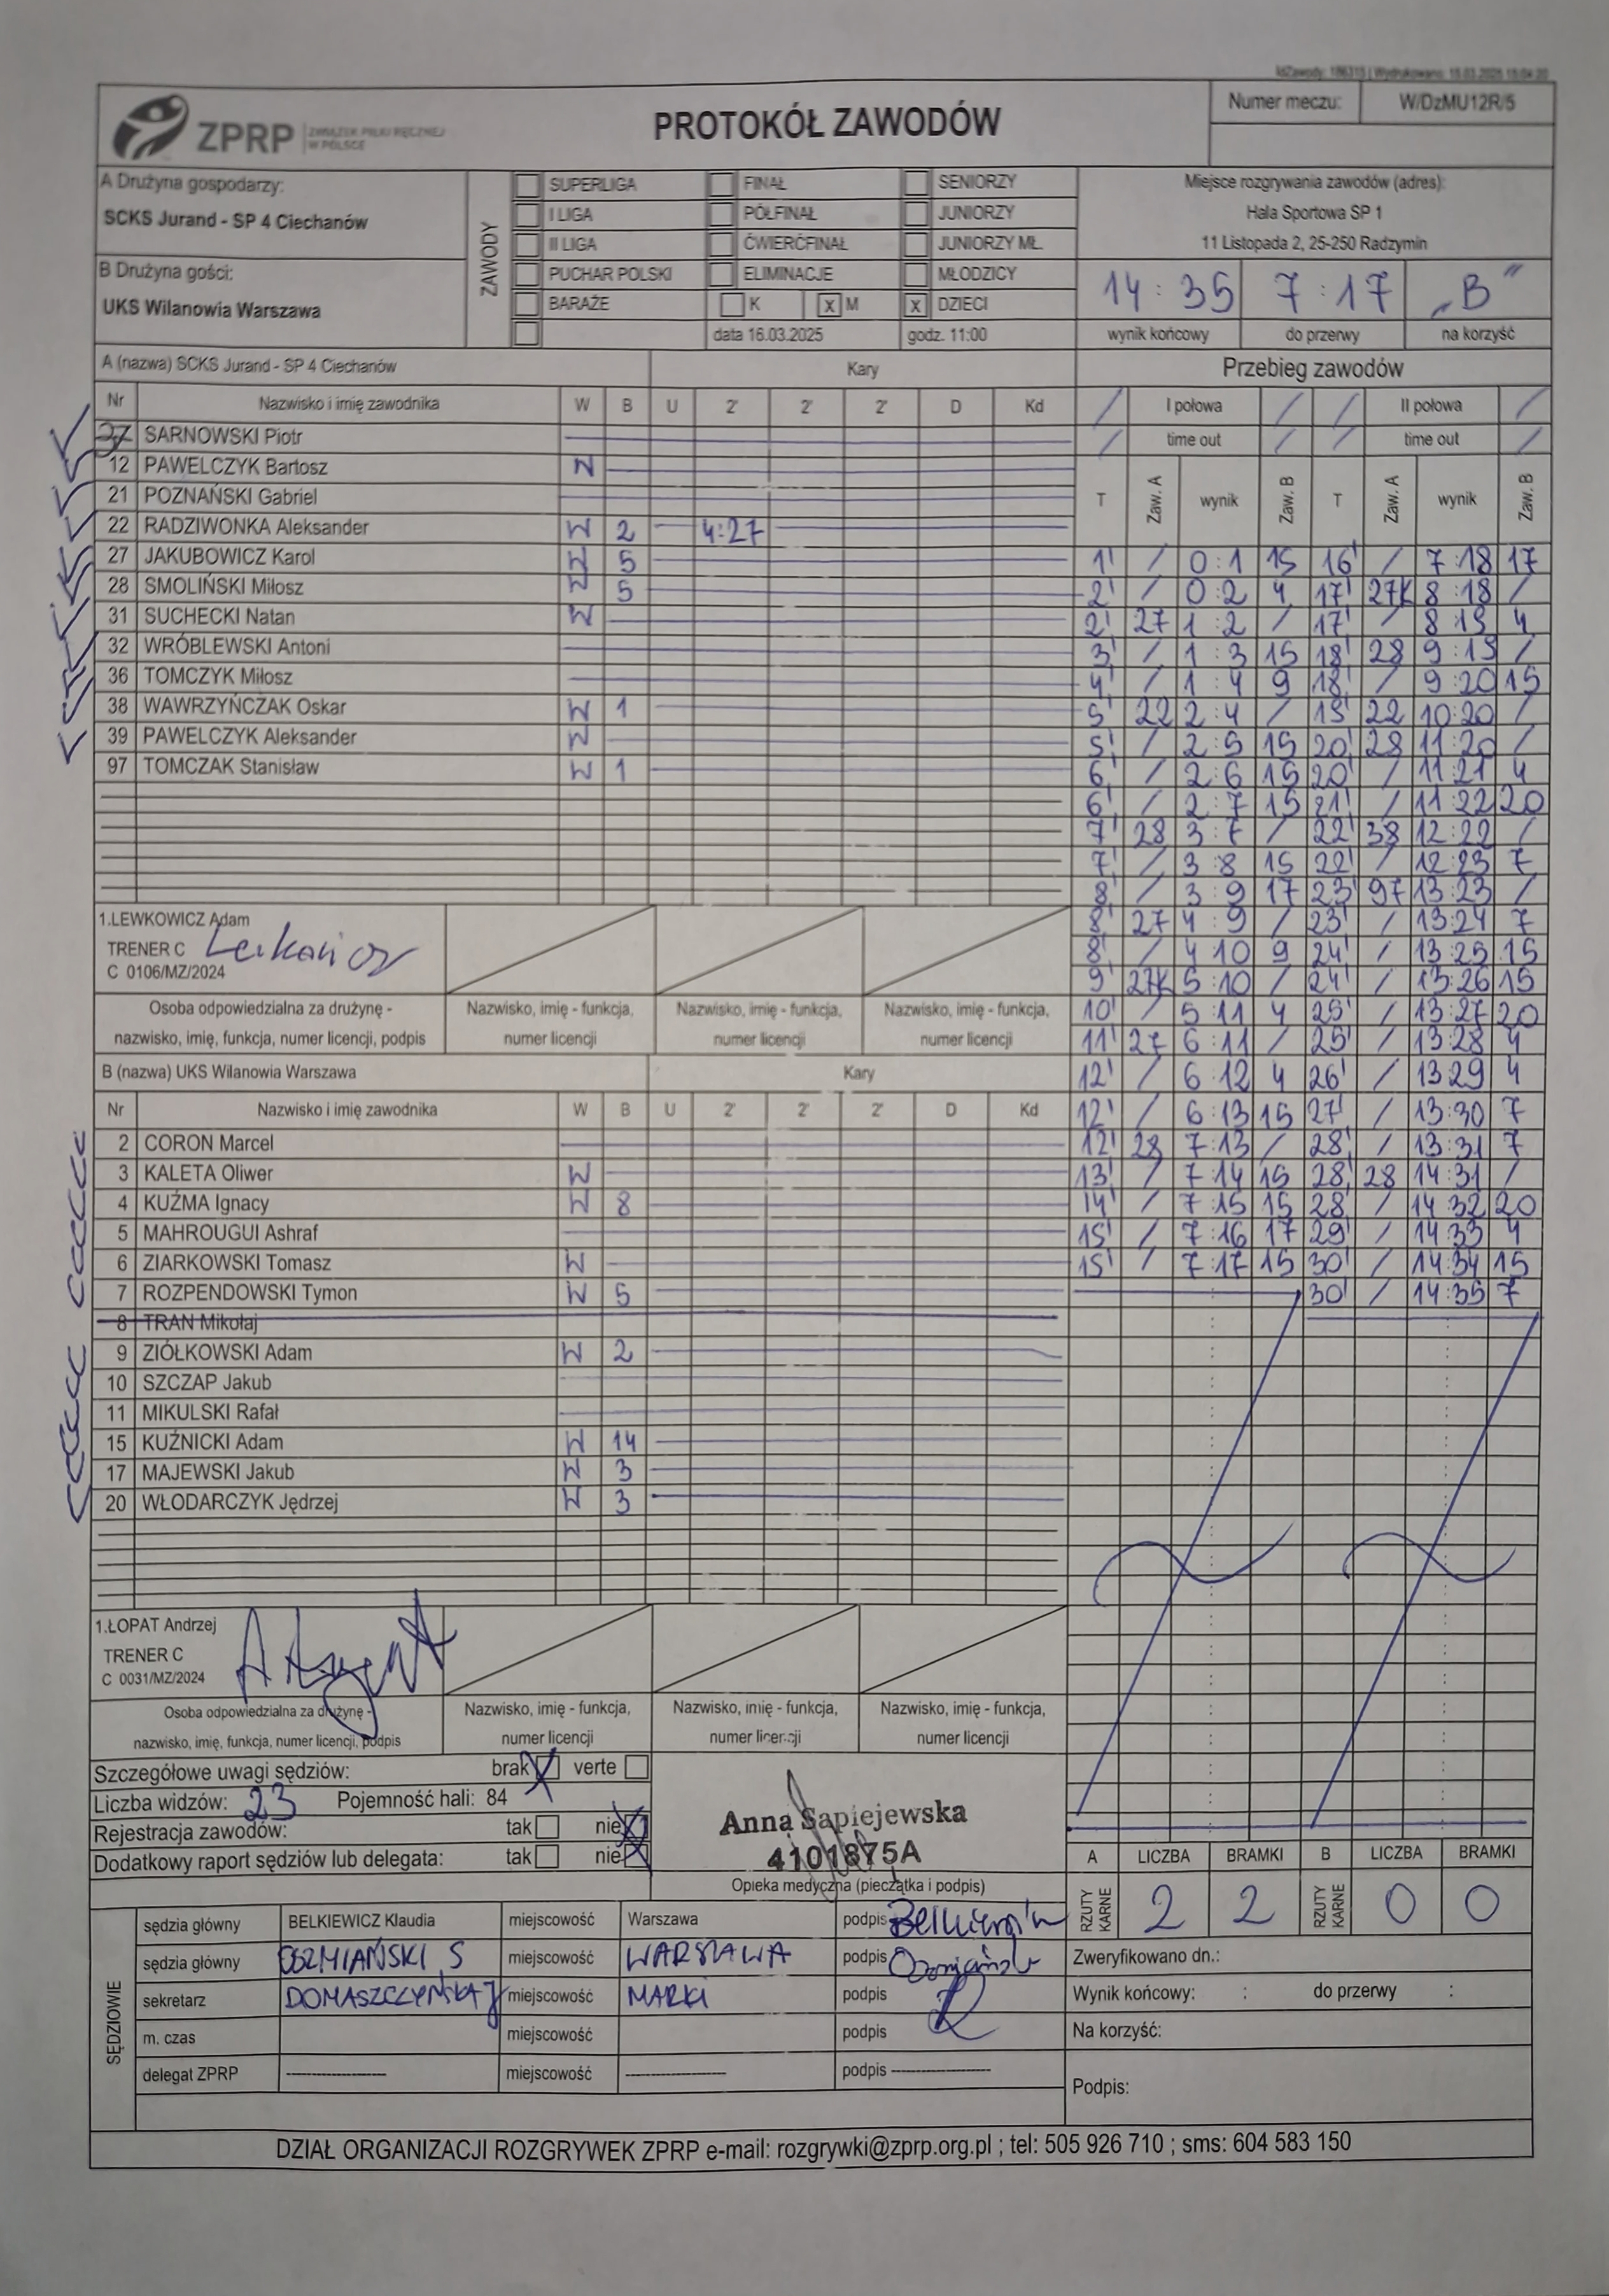 IdZawody: 186315 | Wydrukowano: 15.03.2025 15:04:20
ZPRP ZWIĄZEK PIŁKI RĘCZNEJ W POLSCE
PROTOKÓŁ ZAWODÓW
Numer meczu: W/DzMU12R/5
A Drużyna gospodarzy:
SCKS Jurand - SP 4 Ciechanów
B Drużyna gości:
UKS Wilanowia Warszawa
ZAWODY
SUPERLIGA FINAŁ SENIORZY
I LIGA PÓŁFINAŁ JUNIORZY
II LIGA ĆWIERĆFINAŁ JUNIORZY MŁ.
PUCHAR POLSKI ELIMINACJE MŁODZICY
BARAŻE K x M x DZIECI
data 16.03.2025 godz. 11:00
Miejsce rozgrywania zawodów (adres):
Hala Sportowa SP 1
11 Listopada 2, 25-250 Radzymin
14 : 35 7 : 17 „B"
wynik końcowy do przerwy na korzyść
A (nazwa) SCKS Jurand - SP 4 Ciechanów Kary
Nr Nazwisko i imię zawodnika W B U 2' 2' 2' D Kd
37 SARNOWSKI Piotr
12 PAWELCZYK Bartosz W
21 POZNAŃSKI Gabriel
22 RADZIWONKA Aleksander W 2 4:27
27 JAKUBOWICZ Karol W 5
28 SMOLIŃSKI Miłosz W 5
31 SUCHECKI Natan W
32 WRÓBLEWSKI Antoni
36 TOMCZYK Miłosz
38 WAWRZYŃCZAK Oskar W 1
39 PAWELCZYK Aleksander W
97 TOMCZAK Stanisław W 1
1.LEWKOWICZ Adam
TRENER C
C 0106/MZ/2024
Osoba odpowiedzialna za drużynę - Nazwisko, imię - funkcja, Nazwisko, imię - funkcja, Nazwisko, imię - funkcja,
nazwisko, imię, funkcja, numer licencji, podpis numer licencji numer licencji numer licencji
B (nazwa) UKS Wilanowia Warszawa Kary
Nr Nazwisko i imię zawodnika W B U 2' 2' 2' D Kd
2 CORON Marcel
3 KALETA Oliwer W
4 KUŹMA Ignacy W 8
5 MAHROUGUI Ashraf
6 ZIARKOWSKI Tomasz W
7 ROZPENDOWSKI Tymon W 5
8 TRAN Mikołaj
9 ZIÓŁKOWSKI Adam W 2
10 SZCZAP Jakub
11 MIKULSKI Rafał
15 KUŹNICKI Adam W 14
17 MAJEWSKI Jakub W 3
20 WŁODARCZYK Jędrzej W 3
1.ŁOPAT Andrzej
TRENER C
C 0031/MZ/2024
Osoba odpowiedzialna za drużynę - Nazwisko, imię - funkcja, Nazwisko, imię - funkcja, Nazwisko, imię - funkcja,
nazwisko, imię, funkcja, numer licencji, podpis numer licencji numer licencji numer licencji
Przebieg zawodów
/ I połowa / / II połowa /
/ time out / / time out /
T Zaw. A wynik Zaw. B T Zaw. A wynik Zaw. B
1' / 0:1 15 16' / 7:18 17
2' / 0:2 4 17' 27K 8:18 /
2' 27 1:2 / 17' / 8:19 4
3' / 1:3 15 18' 28 9:19 /
4' / 1:4 9 18' / 9:20 15
5' 22 2:4 / 19' 22 10:20 /
5' / 2:5 15 20' 28 11:20 /
6' / 2:6 15 20' / 11:21 4
6' / 2:7 15 21' / 11:22 20
7' 28 3:7 / 22' 38 12:22 /
7' / 3:8 15 22' / 12:23 7
8' / 3:9 17 23' 97 13:23 /
8' 27 4:9 / 23' / 13:24 7
8' / 4:10 9 24' / 13:25 15
9' 27K 5:10 / 24' / 13:26 15
10' / 5:11 4 25' / 13:27 20
11' 27 6:11 / 25' / 13:28 4
12' / 6:12 4 26' / 13:29 4
12' / 6:13 15 27' / 13:30 7
12' 28 7:13 / 28' / 13:31 7
13' / 7:14 15 28' 28 14:31 /
14' / 7:15 15 28' / 14:32 20
15' / 7:16 17 29' / 14:33 4
15' / 7:17 15 30' / 14:34 15
30' / 14:35 7
Szczegółowe uwagi sędziów: brak X verte
Liczba widzów: 23 Pojemność hali: 84
Rejestracja zawodów: tak nie X
Dodatkowy raport sędziów lub delegata: tak nie X
Anna Sapiejewska
4101875A
Opieka medyczna (pieczątka i podpis)
A LICZBA BRAMKI B LICZBA BRAMKI
RZUTY KARNE 2 2 RZUTY KARNE 0 0
SĘDZIOWIE
sędzia główny BELKIEWICZ Klaudia miejscowość Warszawa podpis
sędzia główny OSZMIAŃSKI S miejscowość WARSZAWA podpis
sekretarz DOMASZCZYŃSKA J miejscowość MARKI podpis
m. czas miejscowość podpis
delegat ZPRP ---------- miejscowość ---------- podpis ----------
Zweryfikowano dn.:
Wynik końcowy: : do przerwy :
Na korzyść:
Podpis:
DZIAŁ ORGANIZACJI ROZGRYWEK ZPRP e-mail: rozgrywki@zprp.org.pl ; tel: 505 926 710 ; sms: 604 583 150